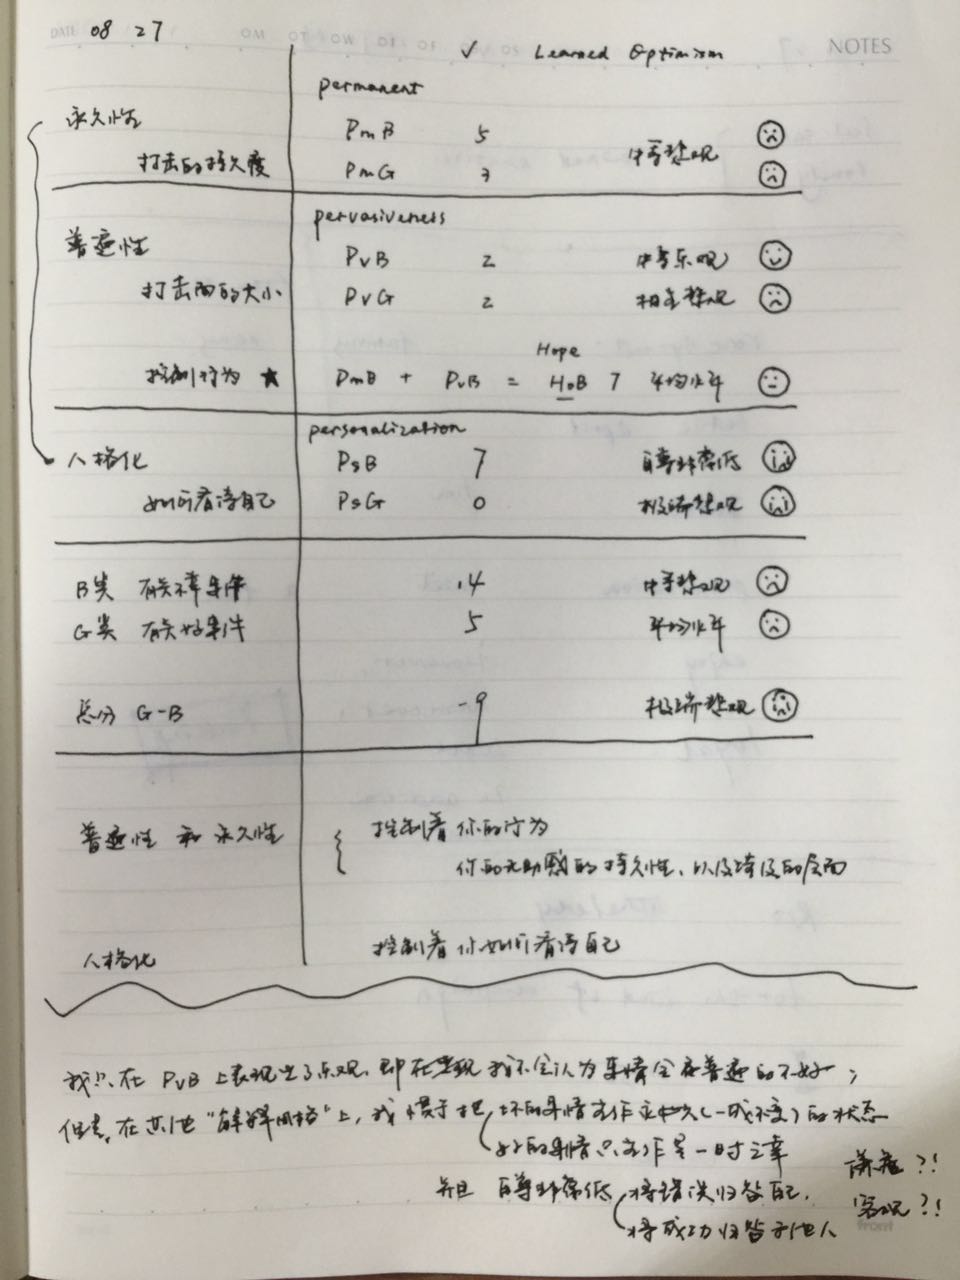 08 27
NOTES
✓ Learned Optimism
permanent
永久性 PmB 5
打击的持久度 PmG 3 中等悲观
pervasiveness
普遍性 PvB 2 中等乐观
打击面的大小 PvG 2 相当悲观
Hope
控制行为 ★ PmB + PvB = HoB 7 平均水平
personalization
人格化 PsB 7 自尊非常低
如何看待自己 PsG 0 极端悲观
B类 有关不幸事件 14 中等悲观
G类 有关好事件 5 平均水平
总分 G-B -9 极端悲观
普遍性 和 永久性 { 控制着你的行为
你的无助感的持久性、以及波及的层面
人格化 控制着你如何看待自己
我只在 PvB 上表现出了乐观、即在 我不会认为事情会 普遍的不好;
但是,在其他“解释风格”上,我惯于把 坏的事情看作永久(一成不变)的状态
好的事情只看作是一时之幸
并且 自尊非常低 将错误归咎自己. 谦虚?!
将成功归咎于他人 客观?!
front